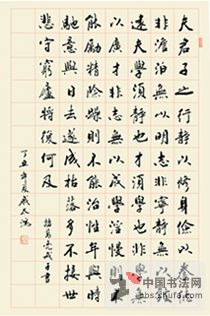 夫君子之行靜以修身儉以養德
非澹泊無以明志非寧靜無以致
遠夫學須靜也才須學也非學無
以廣才非志無以成學慆慢則不
能勵精險躁則不能治性年與時
馳意與日去遂成枯落多不接世
悲守窮廬將復何及
諸葛亮戒子書
中国书法网
bbs.shufa.com